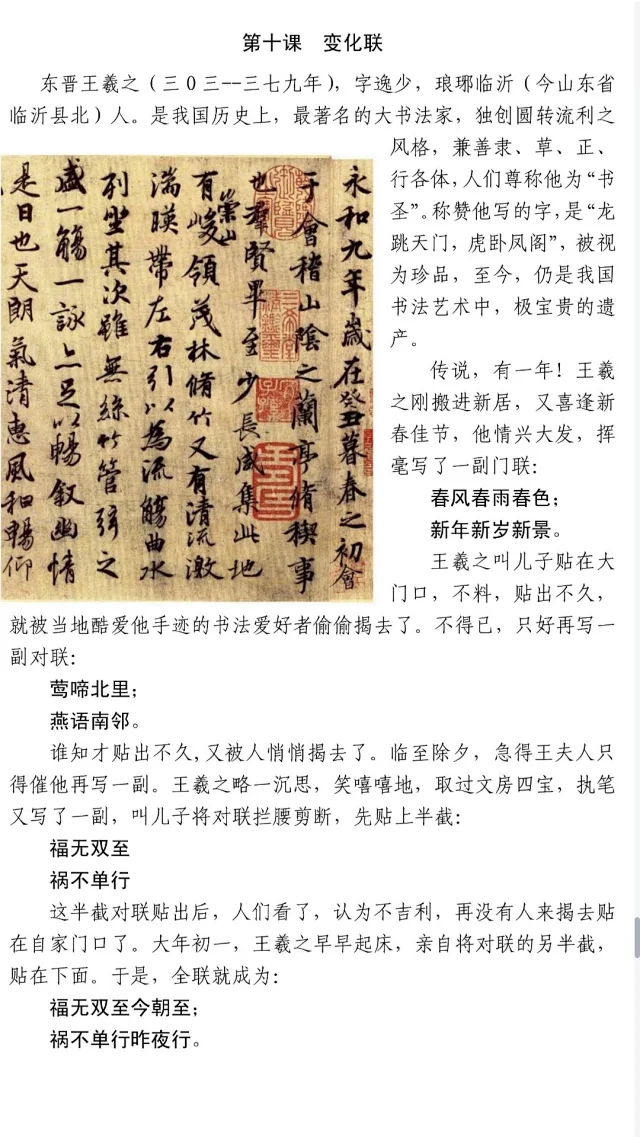 第十课 变化联
东晋王羲之（三0三--三七九年），字逸少，琅琊临沂（今山东省
临沂县北）人。是我国历史上，最著名的大书法家，独创圆转流利之
风格，兼善隶、草、正、
行各体，人们尊称他为“书
圣”。称赞他写的字，是“龙
跳天门，虎卧凤阁”，被视
为珍品，至今，仍是我国
书法艺术中，极宝贵的遗
产。
传说，有一年！王羲
之刚搬进新居，又喜逢新
春佳节，他情兴大发，挥
毫写了一副门联：
春风春雨春色；
新年新岁新景。
王羲之叫儿子贴在大
门口，不料，贴出不久，
永和九年歲在癸丑暮春之初會
于會稽山陰之蘭亭脩稧事
也羣賢畢至少長咸集此地
有崇山峻領茂林脩竹又有清流激
湍暎帶左右引以為流觴曲水
列坐其次雖無絲竹管弦之
盛一觴一詠亦足以暢敘幽情
是日也天朗氣清惠風和暢仰
就被当地酷爱他手迹的书法爱好者偷偷揭去了。不得已，只好再写一
副对联：
莺啼北里；
燕语南邻。
谁知才贴出不久,又被人悄悄揭去了。临至除夕，急得王夫人只
得催他再写一副。王羲之略一沉思，笑嘻嘻地，取过文房四宝，执笔
又写了一副，叫儿子将对联拦腰剪断，先贴上半截：
福无双至
祸不单行
这半截对联贴出后，人们看了，认为不吉利，再没有人来揭去贴
在自家门口了。大年初一，王羲之早早起床，亲自将对联的另半截，
贴在下面。于是，全联就成为：
福无双至今朝至；
祸不单行昨夜行。